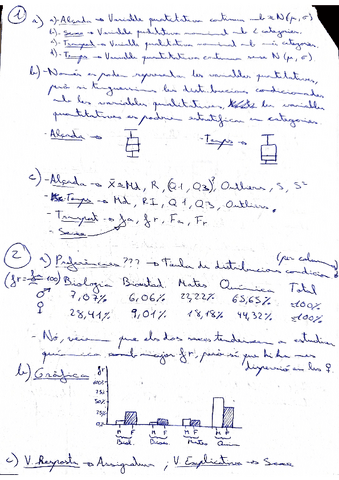 1 a) a) - Alçada → Variable quantitativa continua x N(μ, σ)
b) - Sexe → Variable qualitativa nominal 2 categories.
c) - Transport → Variable qualitativa nominal categories.
d) - Temps → Variable quantitativa continua N(μ, σ)
b) - Només es poden representar les variables quantitatives,
però si les distribucions condicionades
les variables qualitatives. les variables
quantitatives es podrien estratificar en categories.
- Alçada → - Temps →
c) - Alçada → Md, R, (Q1, Q3), Outliers, S, S²
- Temps → Md, RI, Q1, Q3, Outliers.
- Transport → fa, fr, Fa, Fr
- Sexe
2 a) Preferències ??? → Taula de distribucions condicio (per columnes)
Biologia Bioestad Mates Química Total
♂ 7,07% 6,06% 22,22% 65,65% 100%
♀ 28,41% 9,01% 18,18% 44,32% 100%
- No, veiem que els dos sexes tendeixen a estudiar
química amb major fr, però sí que hi ha més
dispersió en les ♀.
b) Gràfica fr
M F M F M F M F
Biol. Bioes. Mates Quím
c) V. Resposta → Assignatura ; V Explicativa → Sexe